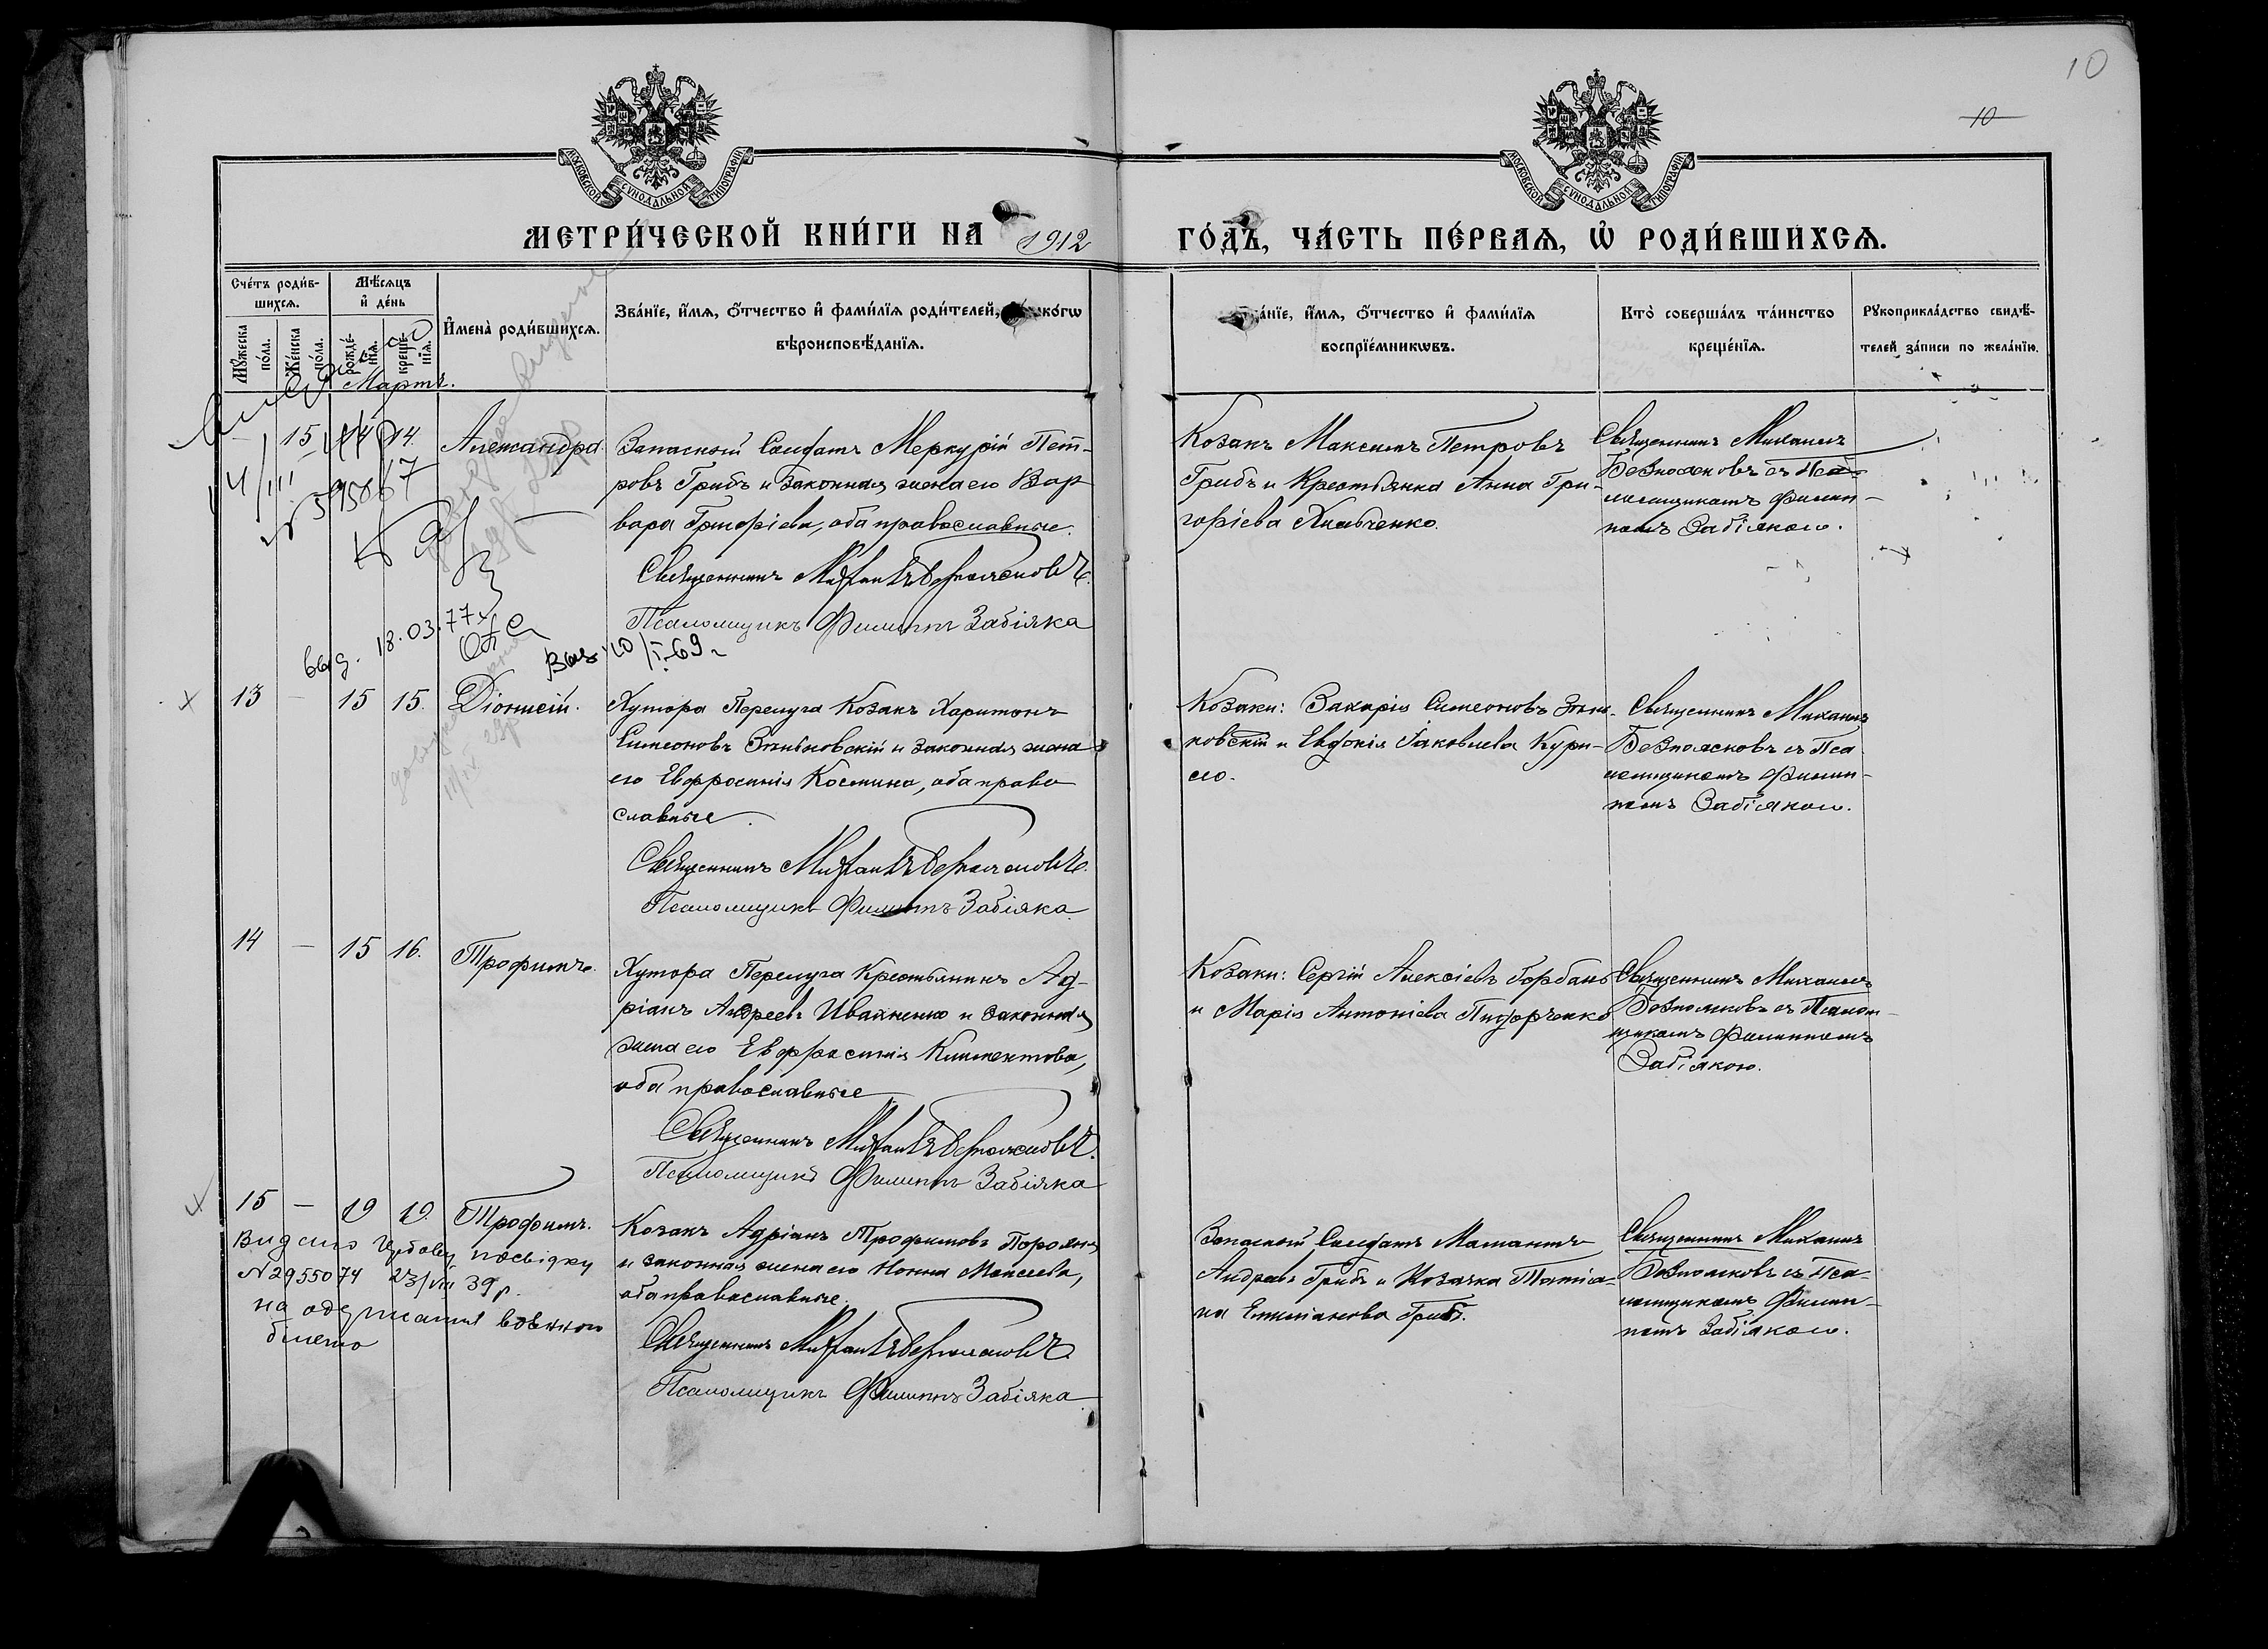 10
10
МОСКОВСКОЙ СУНОДАЛЬНОЙ ТИПОГРАФІИ
МОСКОВСКОЙ СУНОДАЛЬНОЙ ТИПОГРАФІИ
МЕТРИ́ЧЕСКОЙ КНИ́ГИ НА 1912 ГО́ДЪ, ЧА́СТЬ ПЕ́РВАЯ, Ѡ҆ РОДИ́ВШИХСЯ.
Сче́тъ роди́в-
шихся.
Мѣ́сяцъ
и҆ де́нь
Мꙋ́жеска по́ла.
Же́нска по́ла.
рожде́-
нїя.
креще́-
нїя.
И҆мена̀ роди́вшихся.
Зва́нїе, и҆́мя, ѻ҆́тчество и҆ фами́лїя роди́телей, ко́гѡ
вѣроисповѣ́данїя.
а́нїе, и҆́мя, ѻ҆́тчество и҆ фами́лїя
воспрїе́мникѡвъ.
Кто̀ соверша́лъ та́инство
креще́нїя.
Рꙋкоприкла́дство свидѣ́-
телей за́писи по жела́нїю.
Мартъ.
— 15 14 14.
Александра.
Запасной Солдатъ Меркурій Пет-
ровъ Грибъ и законная жена его Вар-
вара Григоріева, оба православные.
Священникъ Михаилъ Безпоясковъ.
Псаломщикъ Филиппъ Забіяка
Козакъ Максимъ Петровъ
Грибъ и Крестьянка Анна Гри-
горіева
Священникъ Михаилъ
Безпоясковъ съ Пса-
ломщикомъ Филип-
помъ Забіякою.
выд. 18.03.77
10/I-69 г
13 — 15 15.
Діонисій.
Хутора Перелуга Козакъ Харитонъ
Симеоновъ Зѣньковскій и законная жена
его Евфросинія Космина, оба право
славные.
Священникъ Михаилъ Безпоясковъ.
Псаломщикъ Филиппъ Забіяка.
Козаки: Захарія Симеоновъ Зѣнь-
ковскій и Евдокія Іаковлева Кури-
ло.
Священникъ Михаилъ
Безпоясковъ съ Пса-
ломщикомъ Филип-
помъ Забіякою.
14 — 15 16.
Трофимъ.
Хутора Перелуга Крестьянинъ Ад-
ріанъ Андреевъ Ивахненко и законная
жена его Евфросинія Климентова,
оба православные
Священникъ Михаилъ Безпоясковъ.
Псаломщикъ Филиппъ Забіяка
Козаки: Сергій Алексіевъ Горбань
и Марія Антоніева Пидорченко
Священникъ Михаилъ
Безпоясковъ съ Псалом-
щикомъ Филиппомъ
Забіякою.
15 — 19 19.
Трофимъ.
Козакъ Адріанъ Трофимовъ
и законная жена его Нонна Моисеева,
оба православные.
Священникъ Михаилъ Безпоясковъ.
Псаломщикъ Филиппъ Забіяка.
Запасной Солдатъ
Андреевъ Грибъ и Козачка Татіа-
на Емиліанова Грибъ.
Священникъ Михаилъ
Безпоясковъ съ Пса-
ломщикомъ Филип-
помъ Забіякою.
Видано посвідку
N 2955074 23/VIII 39 р.
на одержання воєнного
білета